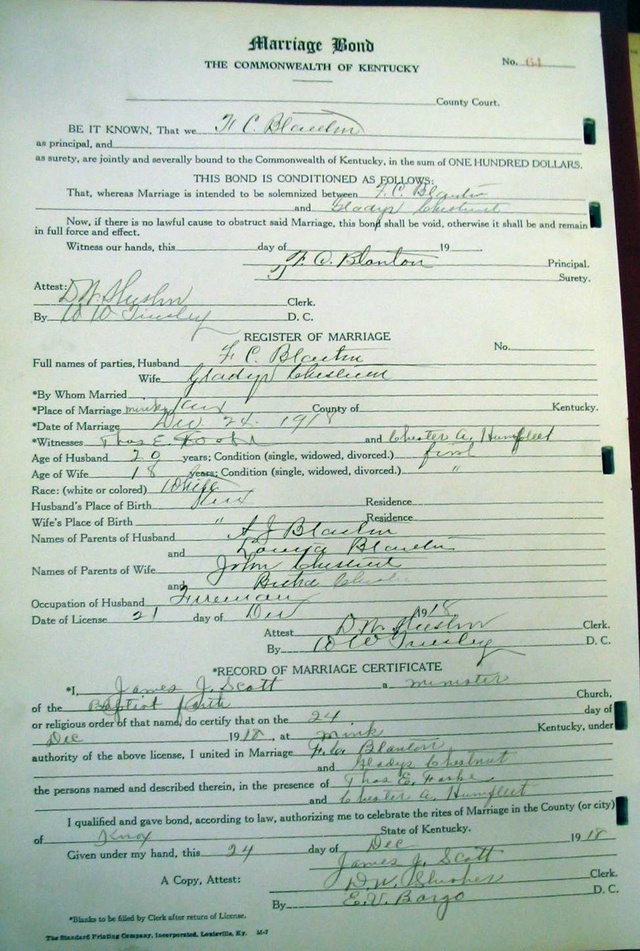 Marriage Bond
THE COMMONWEALTH OF KENTUCKY
No. 61
County Court.
BE IT KNOWN, That we F C. Blanton
as principal, and
as surety, are jointly and severally bound to the Commonwealth of Kentucky, in the sum of ONE HUNDRED DOLLARS.
THIS BOND IS CONDITIONED AS FOLLOWS:
That, whereas Marriage is intended to be solemnized between F. C. Blanton
and Gladys Chestnut
Now, if there is no lawful cause to obstruct said Marriage, this bond shall be void, otherwise it shall be and remain
in full force and effect.
Witness our hands, this day of 19
F. C. Blanton Principal.
Surety.
Attest:
D. W. Slusher Clerk.
By W W Tinsley D. C.
REGISTER OF MARRIAGE
Full names of parties, Husband F C. Blanton No.
Wife Gladys Chestnut
*By Whom Married
*Place of Marriage County of Kentucky.
*Date of Marriage Dec 24 1918
*Witnesses Thos E. and Chester A. Humfleet
Age of Husband 20 years; Condition (single, widowed, divorced.) first
Age of Wife 18 years; Condition (single, widowed, divorced.) "
Race: (white or colored) White
Husband's Place of Birth Residence
Wife's Place of Birth " Residence
Names of Parents of Husband A. J. Blanton
and Louisa Blanton
Names of Parents of Wife John Chestnut
and
Occupation of Husband Fireman
Date of License 21 day of Dec 1918
Attest D. W. Slusher Clerk.
By W W Tinsley D. C.
*RECORD OF MARRIAGE CERTIFICATE
*I, James J. Scott a minister
of the Baptist Faith Church,
or religious order of that name, do certify that on the 24 day of
Dec 1918, at Mink Kentucky, under
authority of the above license, I united in Marriage F. C. Blanton
and Gladys Chestnut
the persons named and described therein, in the presence of Thos E.
and Chester A. Humfleet
I qualified and gave bond, according to law, authorizing me to celebrate the rites of Marriage in the County (or city)
of Knox State of Kentucky.
Given under my hand, this 24 day of Dec 1918
James J. Scott
A Copy, Attest: D. W. Slusher Clerk.
By E. V. Bargo D. C.
*Blanks to be filled by Clerk after return of License.
The Standard Printing Company, Incorporated, Louisville, Ky. M-7